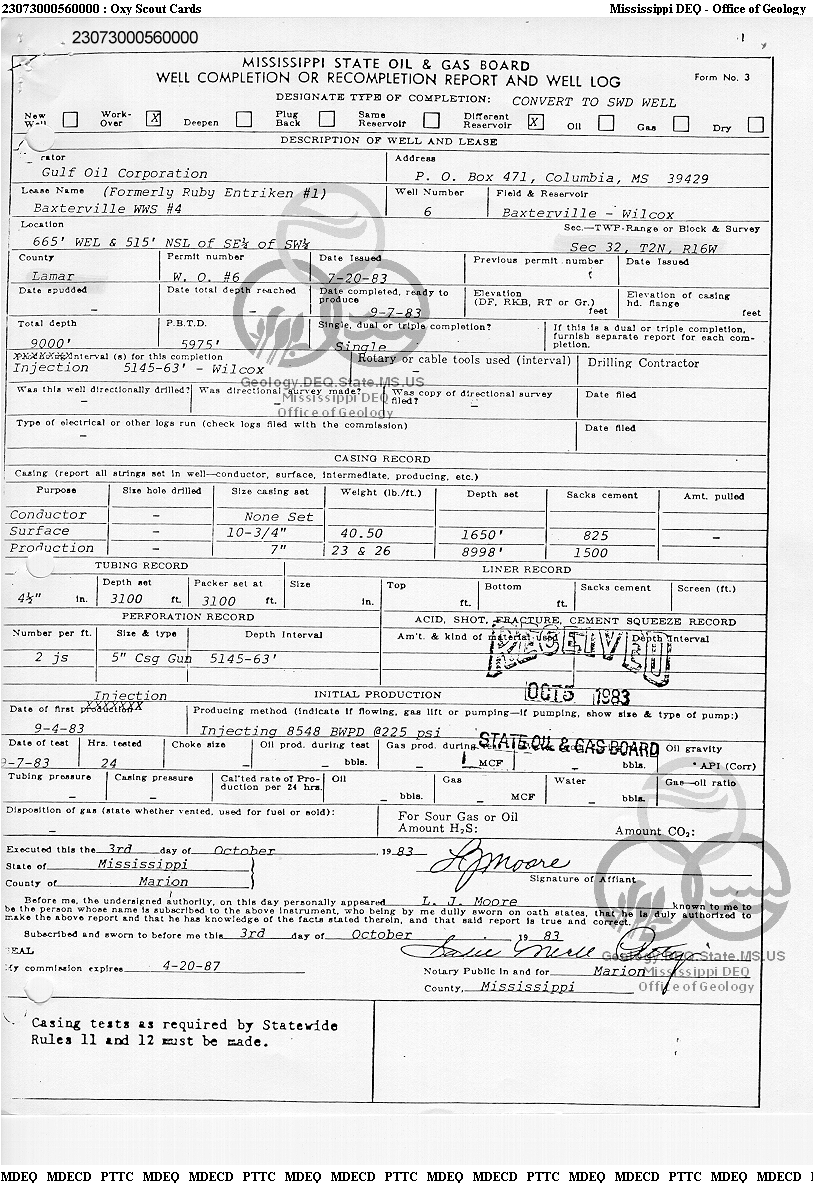 23073000560000 : Oxy Scout Cards Mississippi DEQ - Office of Geology
23073000560000
MISSISSIPPI STATE OIL & GAS BOARD
WELL COMPLETION OR RECOMPLETION REPORT AND WELL LOG Form No. 3
DESIGNATE TYPE OF COMPLETION: CONVERT TO SWD WELL
New Well Work-Over X Deepen Plug Back Same Reservoir Different Reservoir X Oil Gas Dry
DESCRIPTION OF WELL AND LEASE
rator Address
Gulf Oil Corporation P. O. Box 471, Columbia, MS 39429
Lease Name (Formerly Ruby Entriken #1) Well Number Field & Reservoir
Baxterville WWS #4 6 Baxterville - Wilcox
Location Sec.—TWP-Range or Block & Survey
665' WEL & 515' NSL of SE¼ of SW¼ Sec 32, T2N, R16W
County Permit number Date Issued Previous permit number Date Issued
Lamar W. O. #6 7-20-83
Date spudded Date total depth reached Date completed, ready to produce Elevation (DF, RKB, RT or Gr.) Elevation of casing hd. flange
- - 9-7-83 feet feet
Total depth P.B.T.D. Single, dual or triple completion? If this is a dual or triple completion, furnish separate report for each completion.
9000' 5975' Single
XXXXXXX Interval (s) for this completion Rotary or cable tools used (interval) Drilling Contractor
Injection 5145-63' - Wilcox -
Geology.DEQ.State.MS.US
Mississippi DEQ
Office of Geology
Was this well directionally drilled? Was directional survey made? Was copy of directional survey filed? Date filed
- - -
Type of electrical or other logs run (check logs filed with the commission) Date filed
-
CASING RECORD
Casing (report all strings set in well—conductor, surface, intermediate, producing, etc.)
Purpose Size hole drilled Size casing set Weight (lb./ft.) Depth set Sacks cement Amt. pulled
Conductor - None Set
Surface - 10-3/4" 40.50 1650' 825 -
Production - 7" 23 & 26 8998' 1500
TUBING RECORD LINER RECORD
Depth set Packer set at Size Top Bottom Sacks cement Screen (ft.)
4½" in. 3100 ft. 3100 ft. in. ft. ft.
PERFORATION RECORD ACID, SHOT, FRACTURE, CEMENT SQUEEZE RECORD
Number per ft. Size & type Depth Interval Am't. & kind of material used Depth Interval
2 js 5" Csg Gun 5145-63'
RECEIVED
OCT 5 1983
STATE OIL & GAS BOARD
Injection INITIAL PRODUCTION
Date of first production XXXXXXX Producing method (indicate if flowing, gas lift or pumping—if pumping, show size & type of pump:)
9-4-83 Injecting 8548 BWPD @225 psi
Date of test Hrs. tested Choke size Oil prod. during test Gas prod. during Oil gravity
9-7-83 24 - - bbls. - MCF - bbls. ° API (Corr)
Tubing pressure Casing pressure Cal'ted rate of Production per 24 hrs. Oil Gas Water Gas—oil ratio
- - - bbls. - MCF - bbls. -
Disposition of gas (state whether vented, used for fuel or sold): For Sour Gas or Oil
- Amount H₂S: Amount CO₂:
Executed this the 3rd day of October 19 83 L J Moore
State of Mississippi
County of Marion Signature of Affiant
Before me, the undersigned authority, on this day personally appeared L. J. Moore known to me to
be the person whose name is subscribed to the above instrument, who being by me dully sworn on oath states, that he is duly authorized to
make the above report and that he has knowledge of the facts stated therein, and that said report is true and correct.
Subscribed and sworn to before me this 3rd day of October 19 83
SEAL
My commission expires 4-20-87 Notary Public in and for Marion
County, Mississippi
Geology.DEQ.State.MS.US
Mississippi DEQ
Office of Geology
Casing tests as required by Statewide
Rules 11 and 12 must be made.
MDEQ MDECD PTTC MDEQ MDECD PTTC MDEQ MDECD PTTC MDEQ MDECD PTTC MDEQ MDECD PTTC MDEQ MDECD